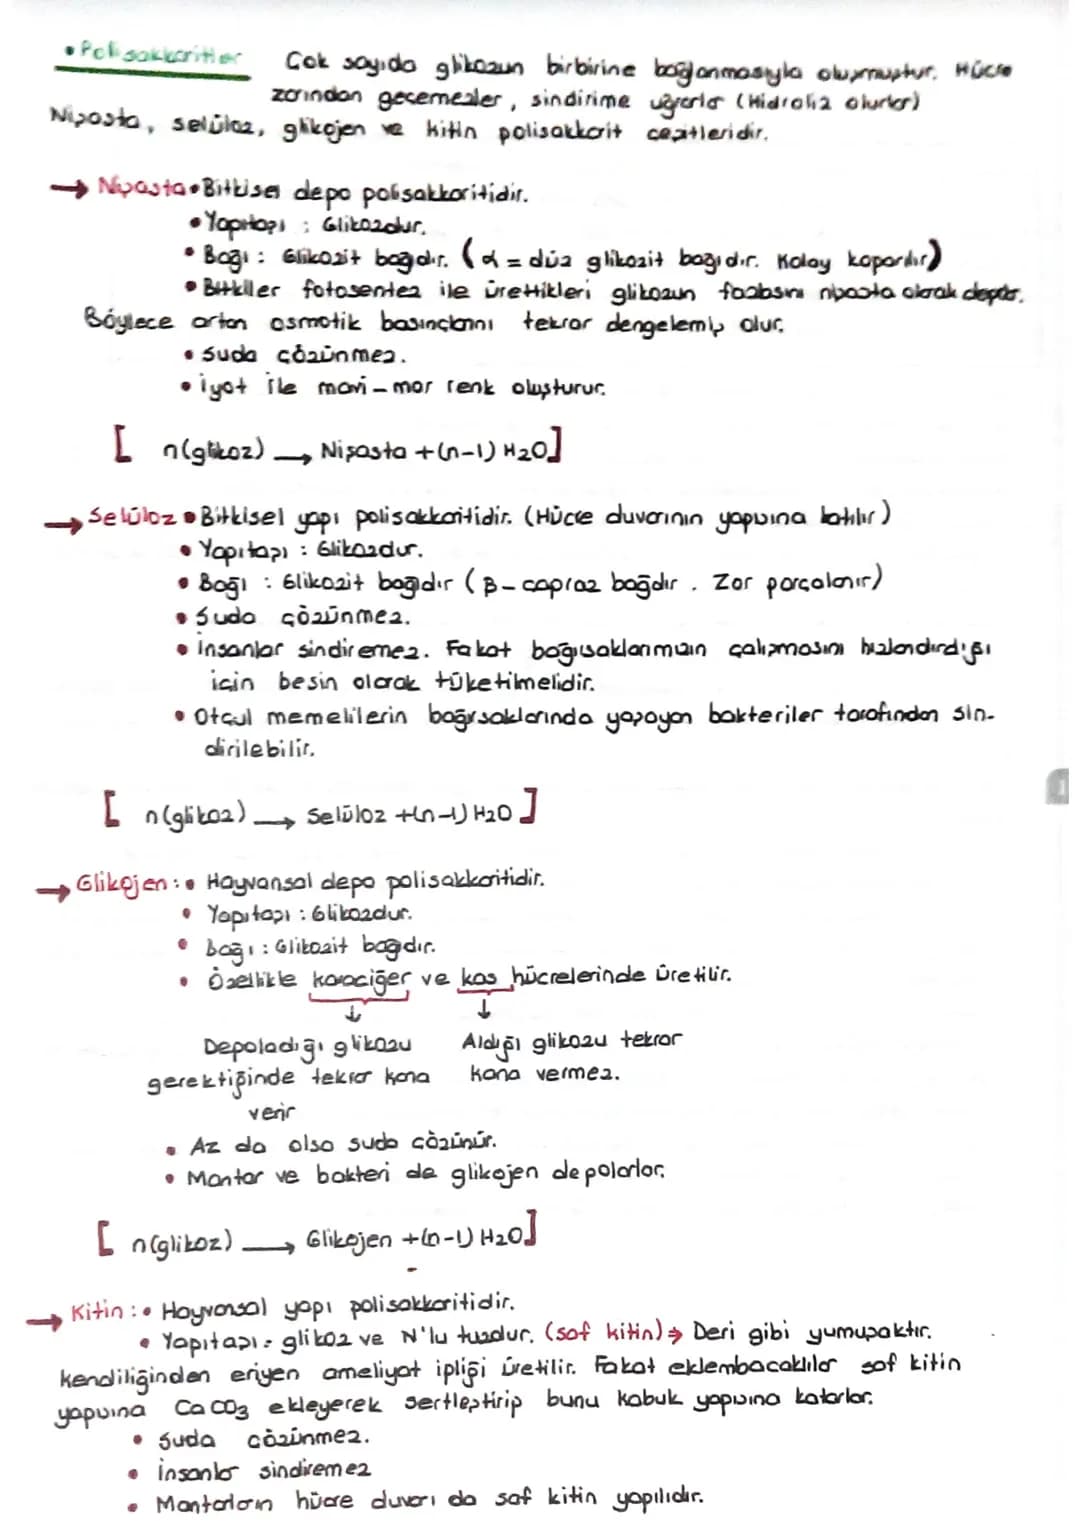 • Polisakkaritler Çok sayıda glikozun birbirine bağlanmasıyla oluşmuştur. Hücre
zarından geçemezler, sindirime uğrarlar (Hidroliz olurlar)
Nişasta, selüloz, glikojen ve kitin polisakkarit çeşitleridir.
→ Nişasta • Bitkisel depo polisakkaritidir.
• Yapıtaşı : Glikozdur.
• Bağı : Glikozit bağıdır. (α = düz glikozit bağıdır. Kolay koparılır)
• Bitkiler fotosentez ile ürettikleri glikozun fazlasını nişasta olarak depolar.
Böylece artan osmotik basınçlarını tekrar dengelemiş olur.
• Suda çözünmez.
• İyot ile mavi-mor renk oluşturur.
[ n(glikoz) → Nişasta + (n-1) H2O]
→ Selüloz • Bitkisel yapı polisakkaritidir. (Hücre duvarının yapısına katılır)
• Yapıtaşı : Glikozdur.
• Bağı : Glikozit bağıdır (β - çapraz bağdır. Zor parçalanır)
• Suda çözünmez.
• İnsanlar sindiremez. Fakat bağırsaklarımızın çalışmasını hızlandırdığı
için besin olarak tüketilmelidir.
• Otçul memelilerin bağırsaklarında yaşayan bakteriler tarafından sin-
dirilebilir.
[ n(glikoz) → Selüloz +(n-1) H2O ]
→ Glikojen : • Hayvansal depo polisakkaritidir.
• Yapıtaşı : Glikozdur.
• bağı : Glikozit bağıdır.
• Özellikle karaciğer ve kas hücrelerinde üretilir.
↓ ↓
Depoladığı glikozu Aldığı glikozu tekrar
gerektiğinde tekrar kana kana vermez.
verir
• Az da olsa suda çözünür.
• Mantar ve bakteri de glikojen depolarlar.
[ n(glikoz) → Glikojen +(n-1) H2O]
→ Kitin : • Hayvansal yapı polisakkaritidir.
• Yapıtaşı = glikoz ve N'lu tuzdur. (saf kitin) → Deri gibi yumuşaktır.
kendiliğinden eriyen ameliyat ipliği üretilir. Fakat eklembacaklılar saf kitin
yapısına CaCO3 ekleyerek sertleştirip bunu kabuk yapısına katarlar.
• Suda çözünmez.
• İnsanlar sindiremez
• Mantarların hücre duvarı da saf kitin yapılıdır.